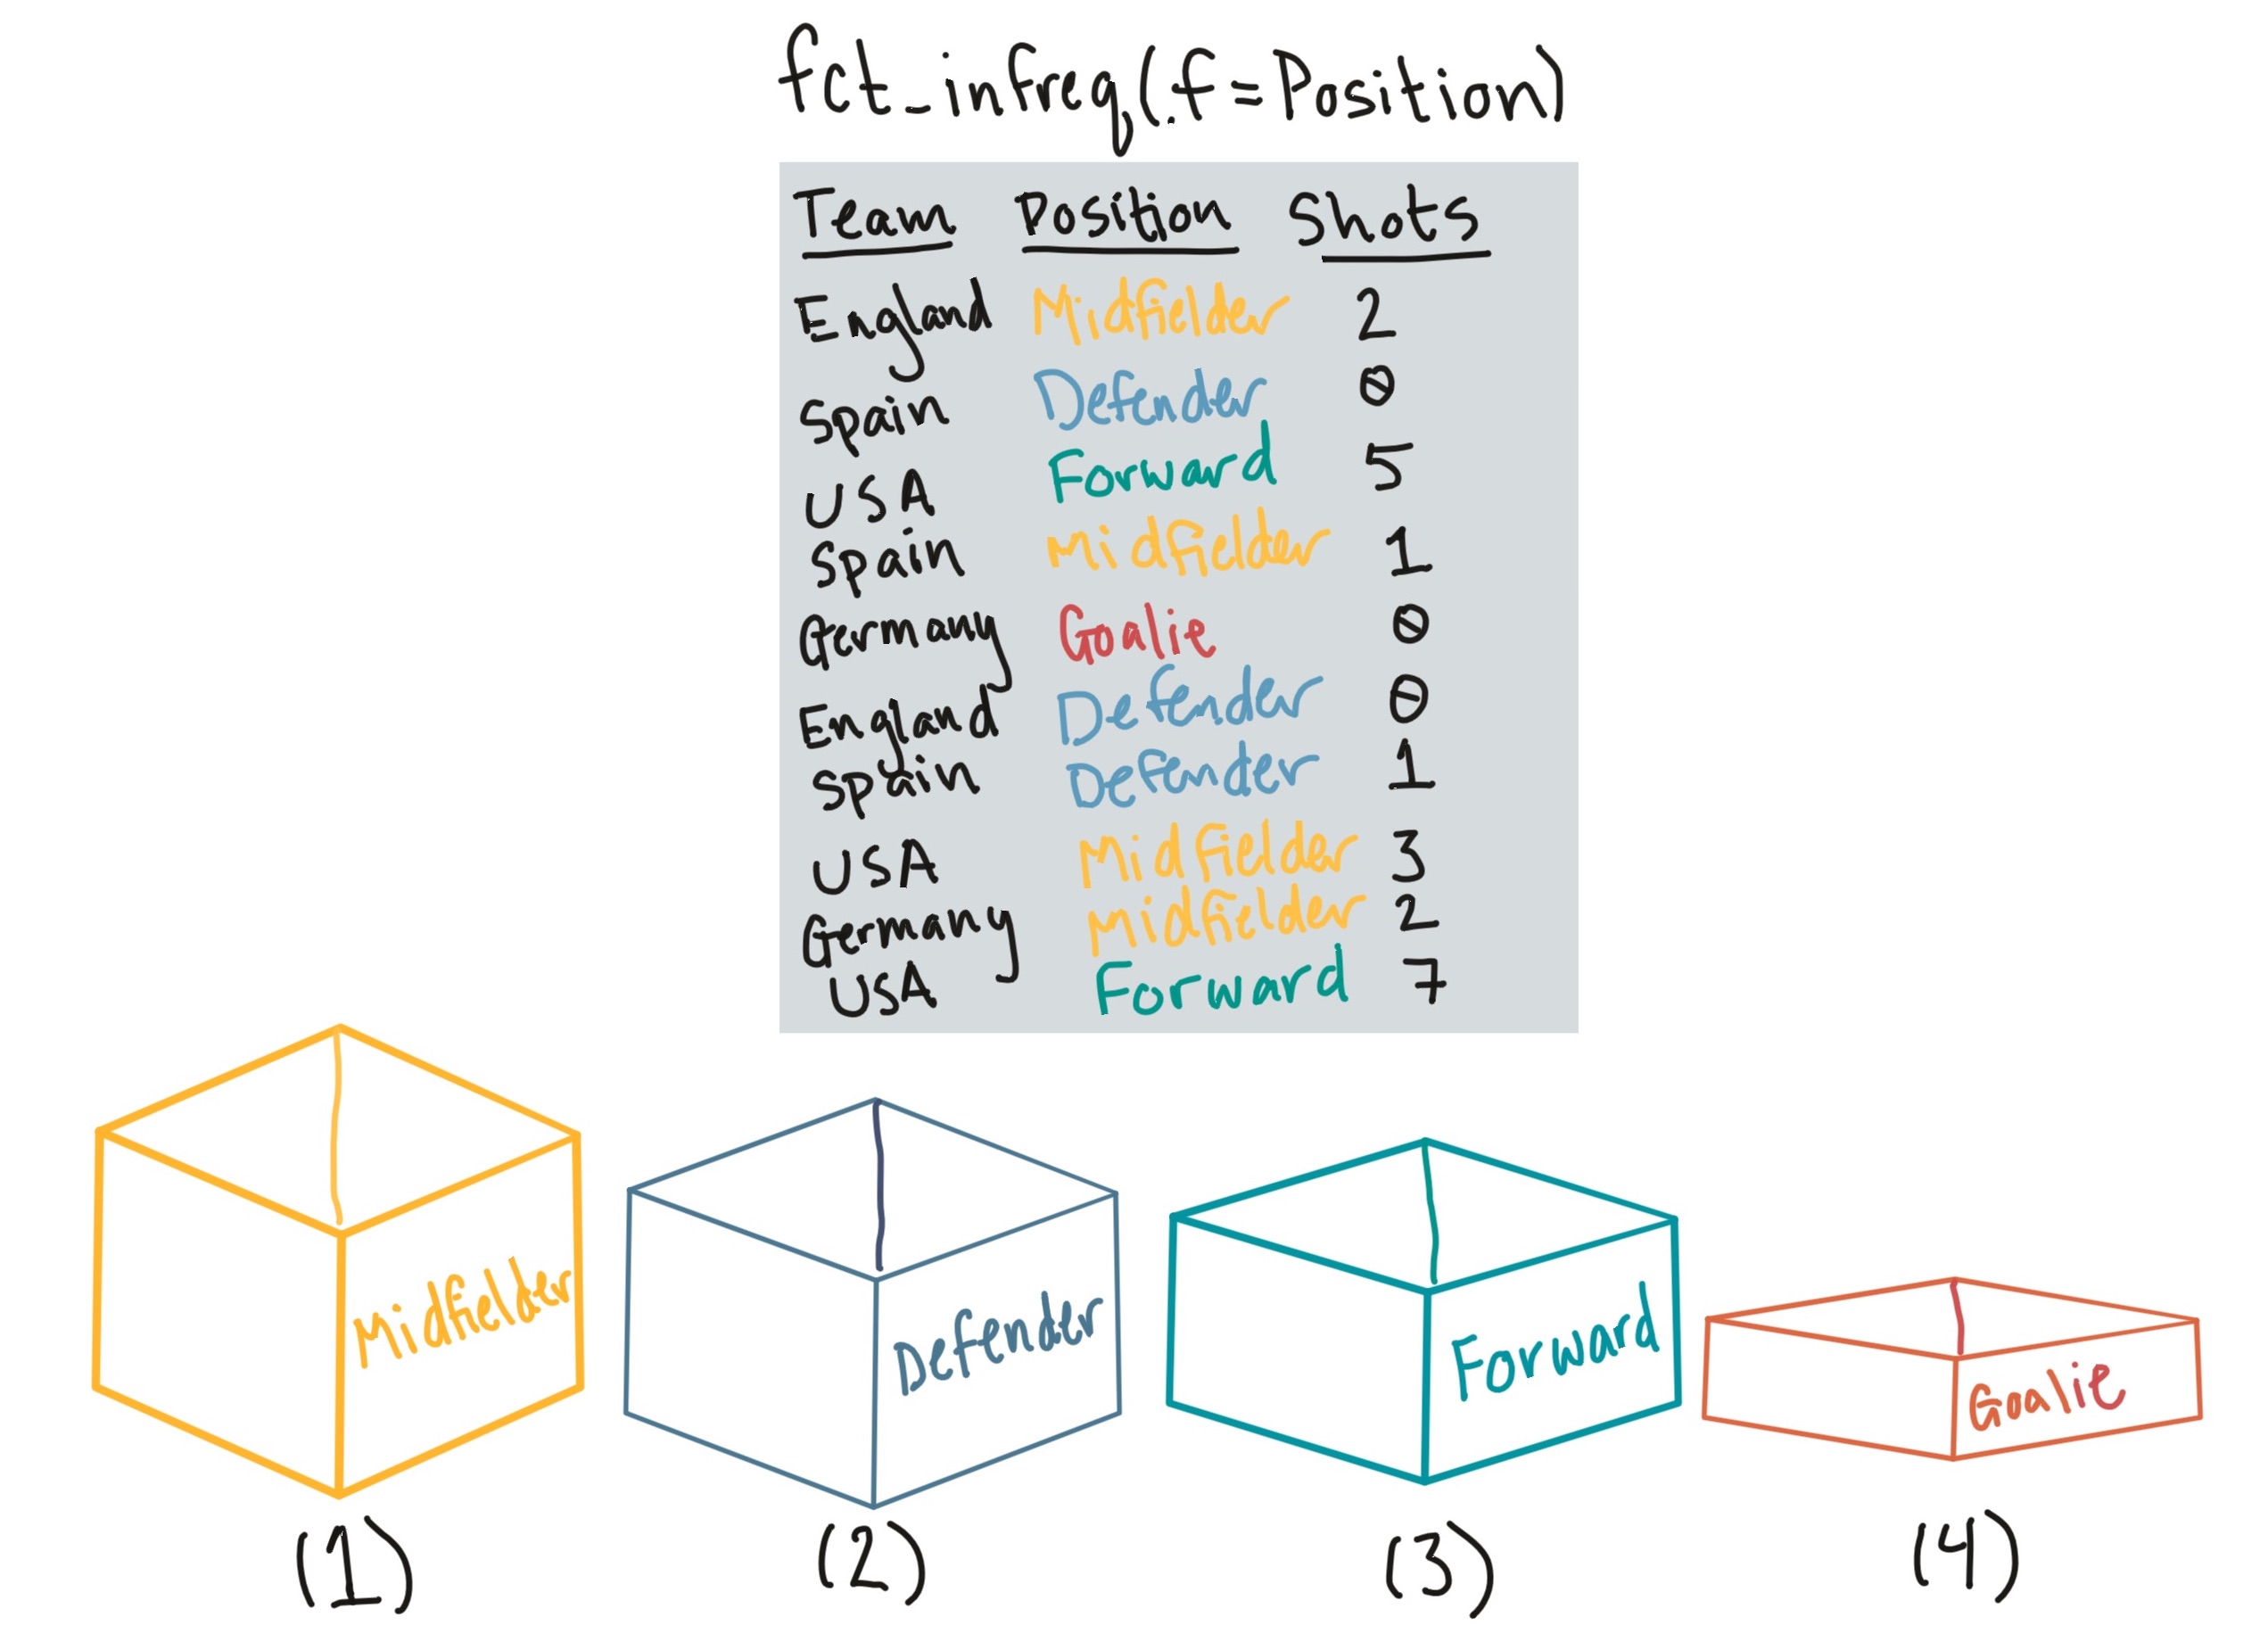 fct_infreq(.f=Position)
Team Position Shots
England Midfielder 2
Spain Defender 0
USA Forward 5
Spain Midfielder 1
Germany Goalie 0
England Defender 0
Spain Defender 1
USA Midfielder 3
Germany Midfielder 2
USA Forward 7
Midfielder Defender Forward Goalie
(1) (2) (3) (4)